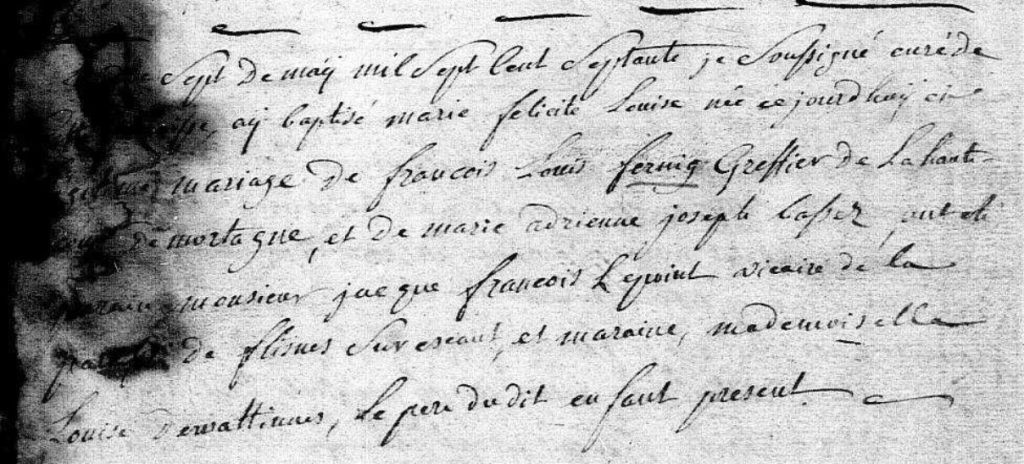 Sept De maÿ mil Sept Cent Septante je Soussigné curé de
aÿ baptisé marie felicité Louise née ce jourdhuÿ en
mariage De francois Louis fernig Greffier de La haute
cour de mortagne, et De marie adrienne joseph Bassez, ont eté
parain monsieur jacque francois Lepoint vicaire de la
paroisse de flisnes Sur escaut, et maraine, mademoiselle
Louise Le pere du dit enfant present